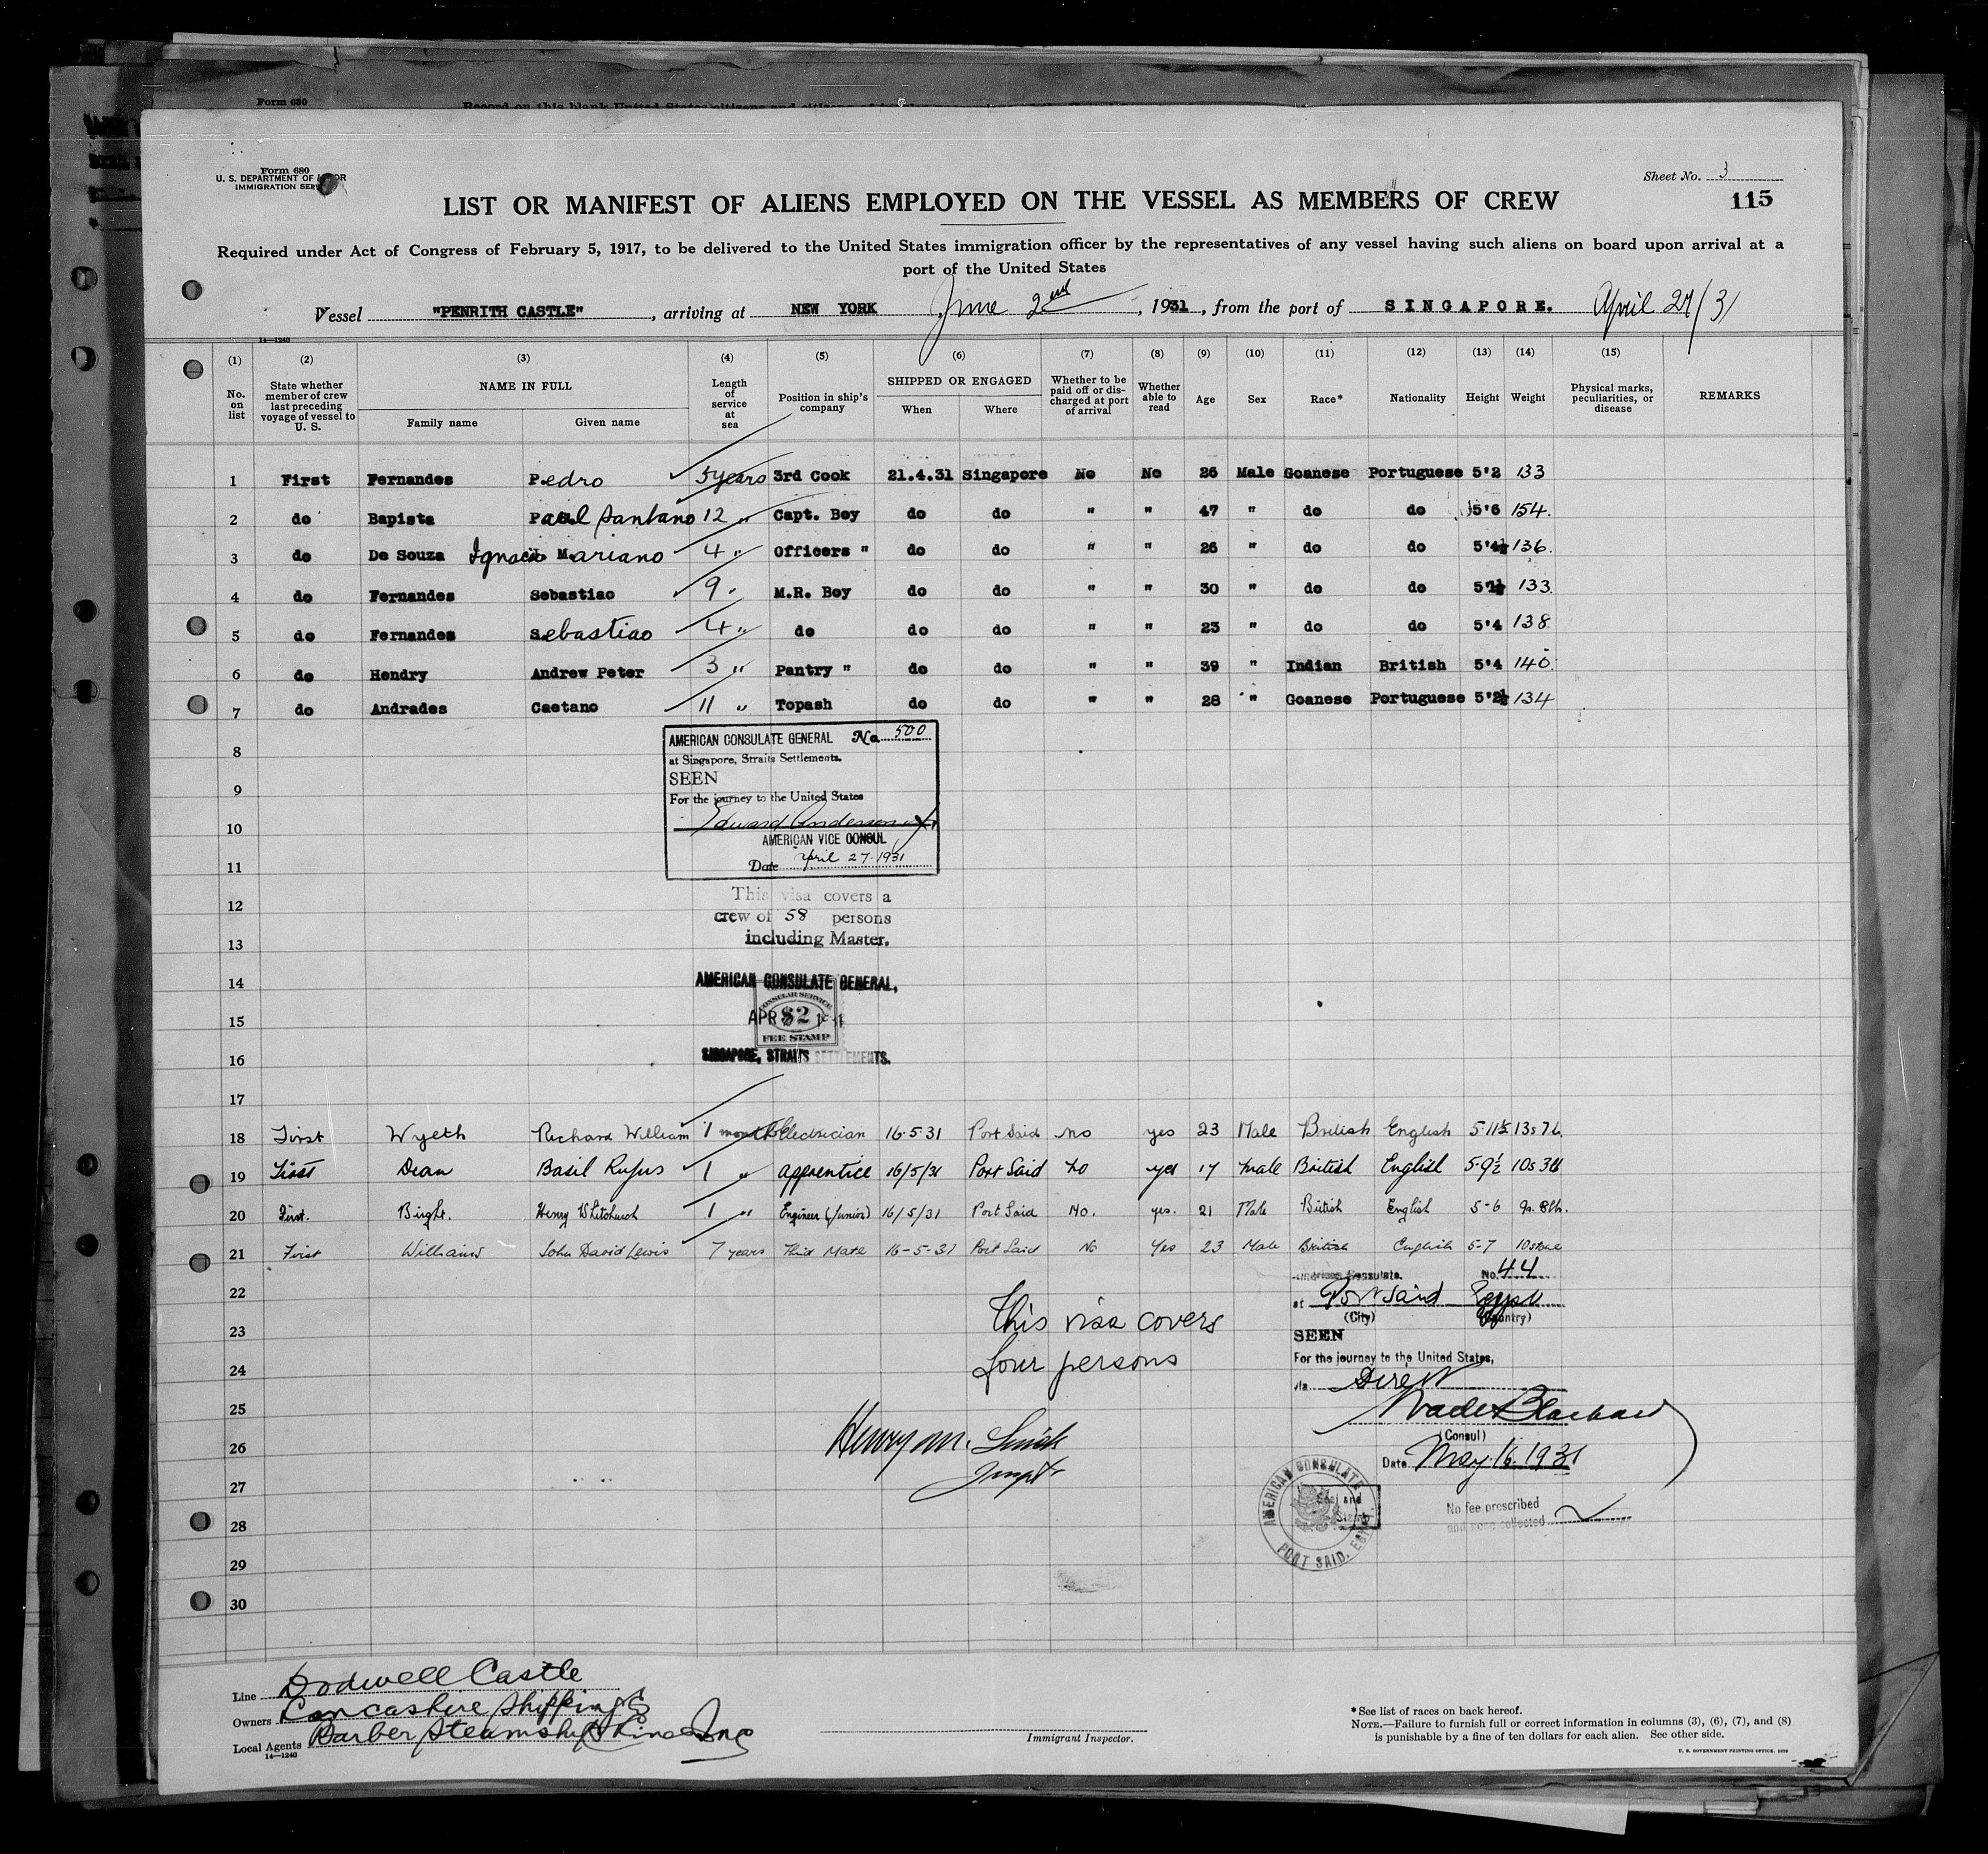 Form 680
Form 680
U. S. DEPARTMENT OF LABOR
IMMIGRATION SERV
Sheet No. 3
115
LIST OR MANIFEST OF ALIENS EMPLOYED ON THE VESSEL AS MEMBERS OF CREW
Required under Act of Congress of February 5, 1917, to be delivered to the United States immigration officer by the representatives of any vessel having such aliens on board upon arrival at a
port of the United States
Vessel "PENRITH CASTLE", arriving at NEW YORK June 2nd, 1931, from the port of SINGAPORE. April 27/31
14—1240
(1) (2) (3) (4) (5) (6) (7) (8) (9) (10) (11) (12) (13) (14) (15)
No. on list State whether member of crew last preceding voyage of vessel to U. S. NAME IN FULL Family name Given name Length of service at sea Position in ship's company SHIPPED OR ENGAGED When Where Whether to be paid off or discharged at port of arrival Whether able to read Age Sex Race* Nationality Height Weight Physical marks, peculiarities, or disease REMARKS
1 First Fernandes Pedro 5 years 3rd Cook 21.4.31 Singapore No No 26 Male Goanese Portuguese 5'2 133
2 do Bapista Paul Santano 12 " Capt. Boy do do " " 47 " do do 5'6 154.
3 do De Souza Ignacio Mariano 4 " Officers " do do " " 26 " do do 5'4½ 136.
4 do Fernandes Sebastiao 9 " M.R. Boy do do " " 30 " do do 133.
5 do Fernandes Sebastiao 4 " do do do " " 23 " do do 5'4 138
6 do Hendry Andrew Peter 3 " Pantry " do do " " 39 " Indian British 5'4 140.
7 do Andrades Caetano 11 " Topash do do " " 28 " Goanese Portuguese 5'2½ 134
8
AMERICAN CONSULATE GENERAL No. 500
at Singapore, Straits Settlements.
SEEN
9
For the journey to the United States
10
Edward Anderson
AMERICAN VICE CONSUL
11
Date April 27-1931
12
This visa covers a
crew of 58 persons
13
including Master.
14
AMERICAN CONSULATE GENERAL,
CONSULAR SERVICE
15
APR $2
FEE STAMP
16
SINGAPORE, STRAITS SETTLEMENTS.
17
18 First Wyeth Richard William 1 month Electrician 16.5.31 Port Said No yes 23 Male British English 5-11½ 13s 7 lb.
19 First Dean Basil Rufus 1 " apprentice 16/5/31 Port Said No yes 17 male British English 5-9½ 10s 3lb
20 First. Bright. Henry Whitchurch 1 " Engineer (Junior) 16/5/31 Port Said No. yes. 21 Male British English 5-6 9s. 8lb.
21 First Williams John David Lewis 7 years Third Mate 16-5-31 Port Said No Yes 23 Male British English 5-7 10 stone
American Consulate. No. 44
22
at Port Said Egypt
(City) (Country)
This visa covers
23
SEEN
24
four persons
For the journey to the United States,
via Direct
25
(Consul)
26
Henry M. Smith
Inspt.
Date May 16. 1931
27
AMERICAN CONSULATE
PORT SAID, EGYPT
Seal and
Stamp
No fee prescribed
and none collected
28
29
30
Line Dodwell Castle
Owners Lancashire Shipping Co
Local Agents Barber Steamship Lines Inc
14—1240
Immigrant Inspector.
*See list of races on back hereof.
NOTE.—Failure to furnish full or correct information in columns (3), (6), (7), and (8)
is punishable by a fine of ten dollars for each alien. See other side.
U. S. GOVERNMENT PRINTING OFFICE